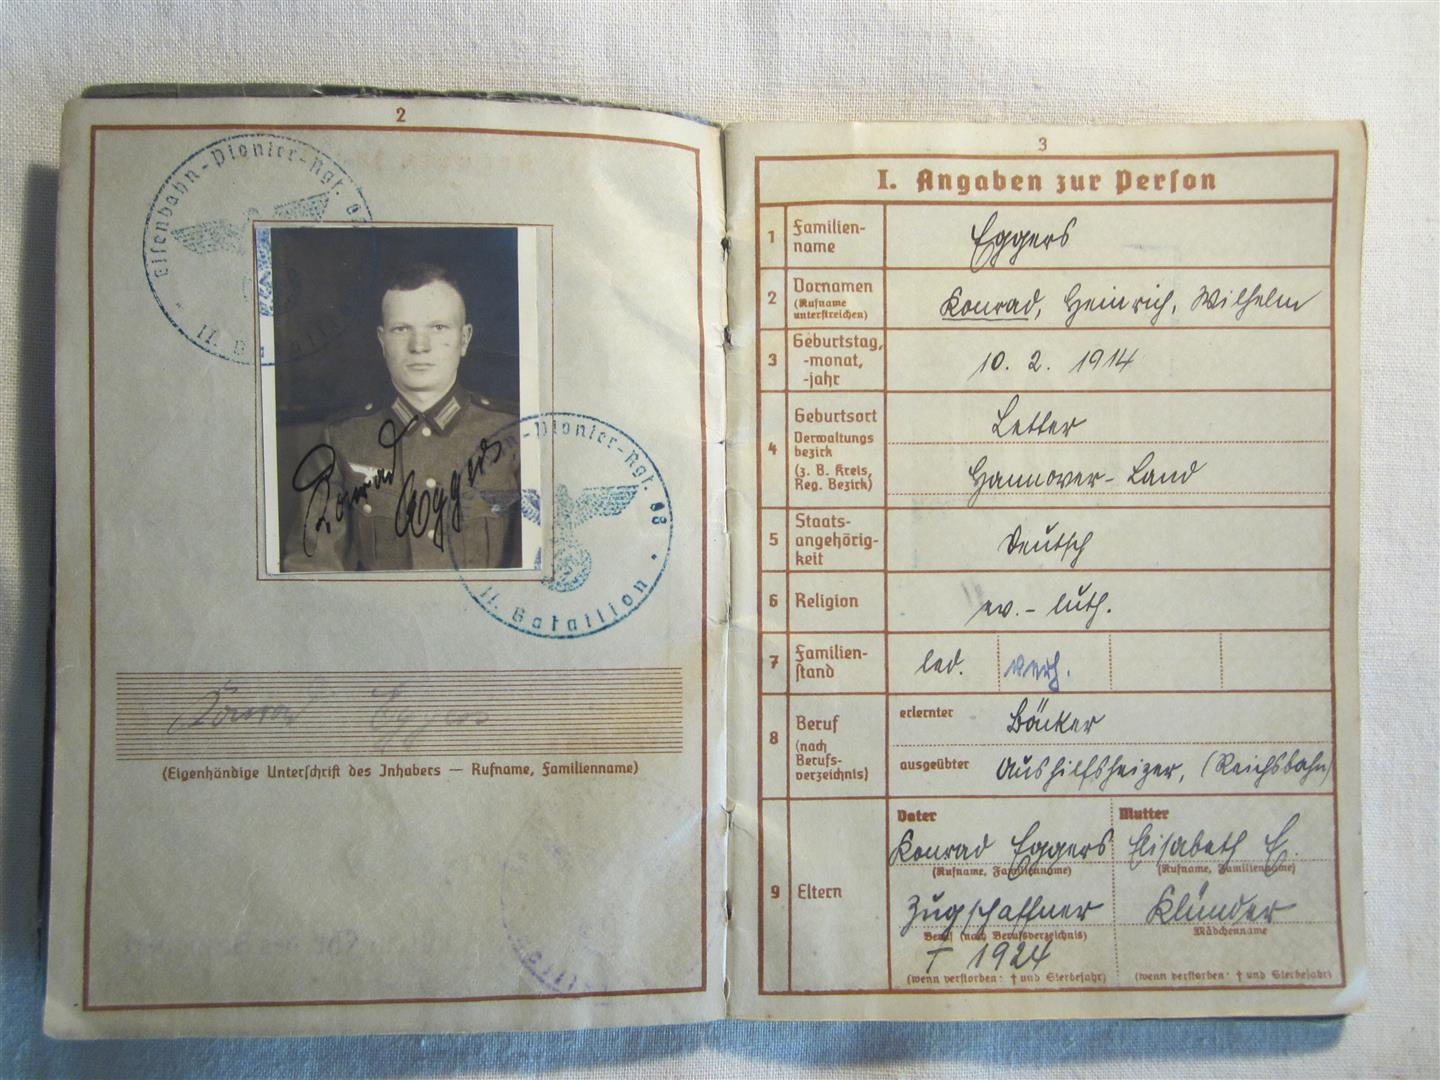 2
Eisenbahn-Pionier-Rgt.
II.
Konrad Eggers
-Pionier-Rgt. 68
II. Bataillon
Konrad Eggers
(Eigenhändige Unterschrift des Inhabers — Rufname, Familienname)
3
I. Angaben zur Person
1 Familien-
name
Eggers
2 Vornamen
(Rufname
unterstreichen)
Konrad, Heinrich, Wilhelm
3 Geburtstag,
-monat,
-jahr
10. 2. 1914
4 Geburtsort
Verwaltungs
bezirk
(z. B. Kreis,
Reg. Bezirk)
Letter
Hannover-Land
5 Staats-
angehörig-
keit
Deutsch
6 Religion
ev.-luth.
7 Familien-
stand
led. verh.
8 Beruf
(nach
Berufs-
verzeichnis)
erlernter Bäcker
ausgeübter Aushilfsheizer, (Reichsbahn)
9 Eltern
Vater Mutter
Konrad Eggers Elisabeth E.
(Rufname, Familienname) (Rufname, Familienname)
Zugschaffner Klünder
Beruf (nach Berufsverzeichnis) Mädchenname
† 1924
(wenn verstorben · † und Sterbejahr) (wenn verstorben · † und Sterbejahr)